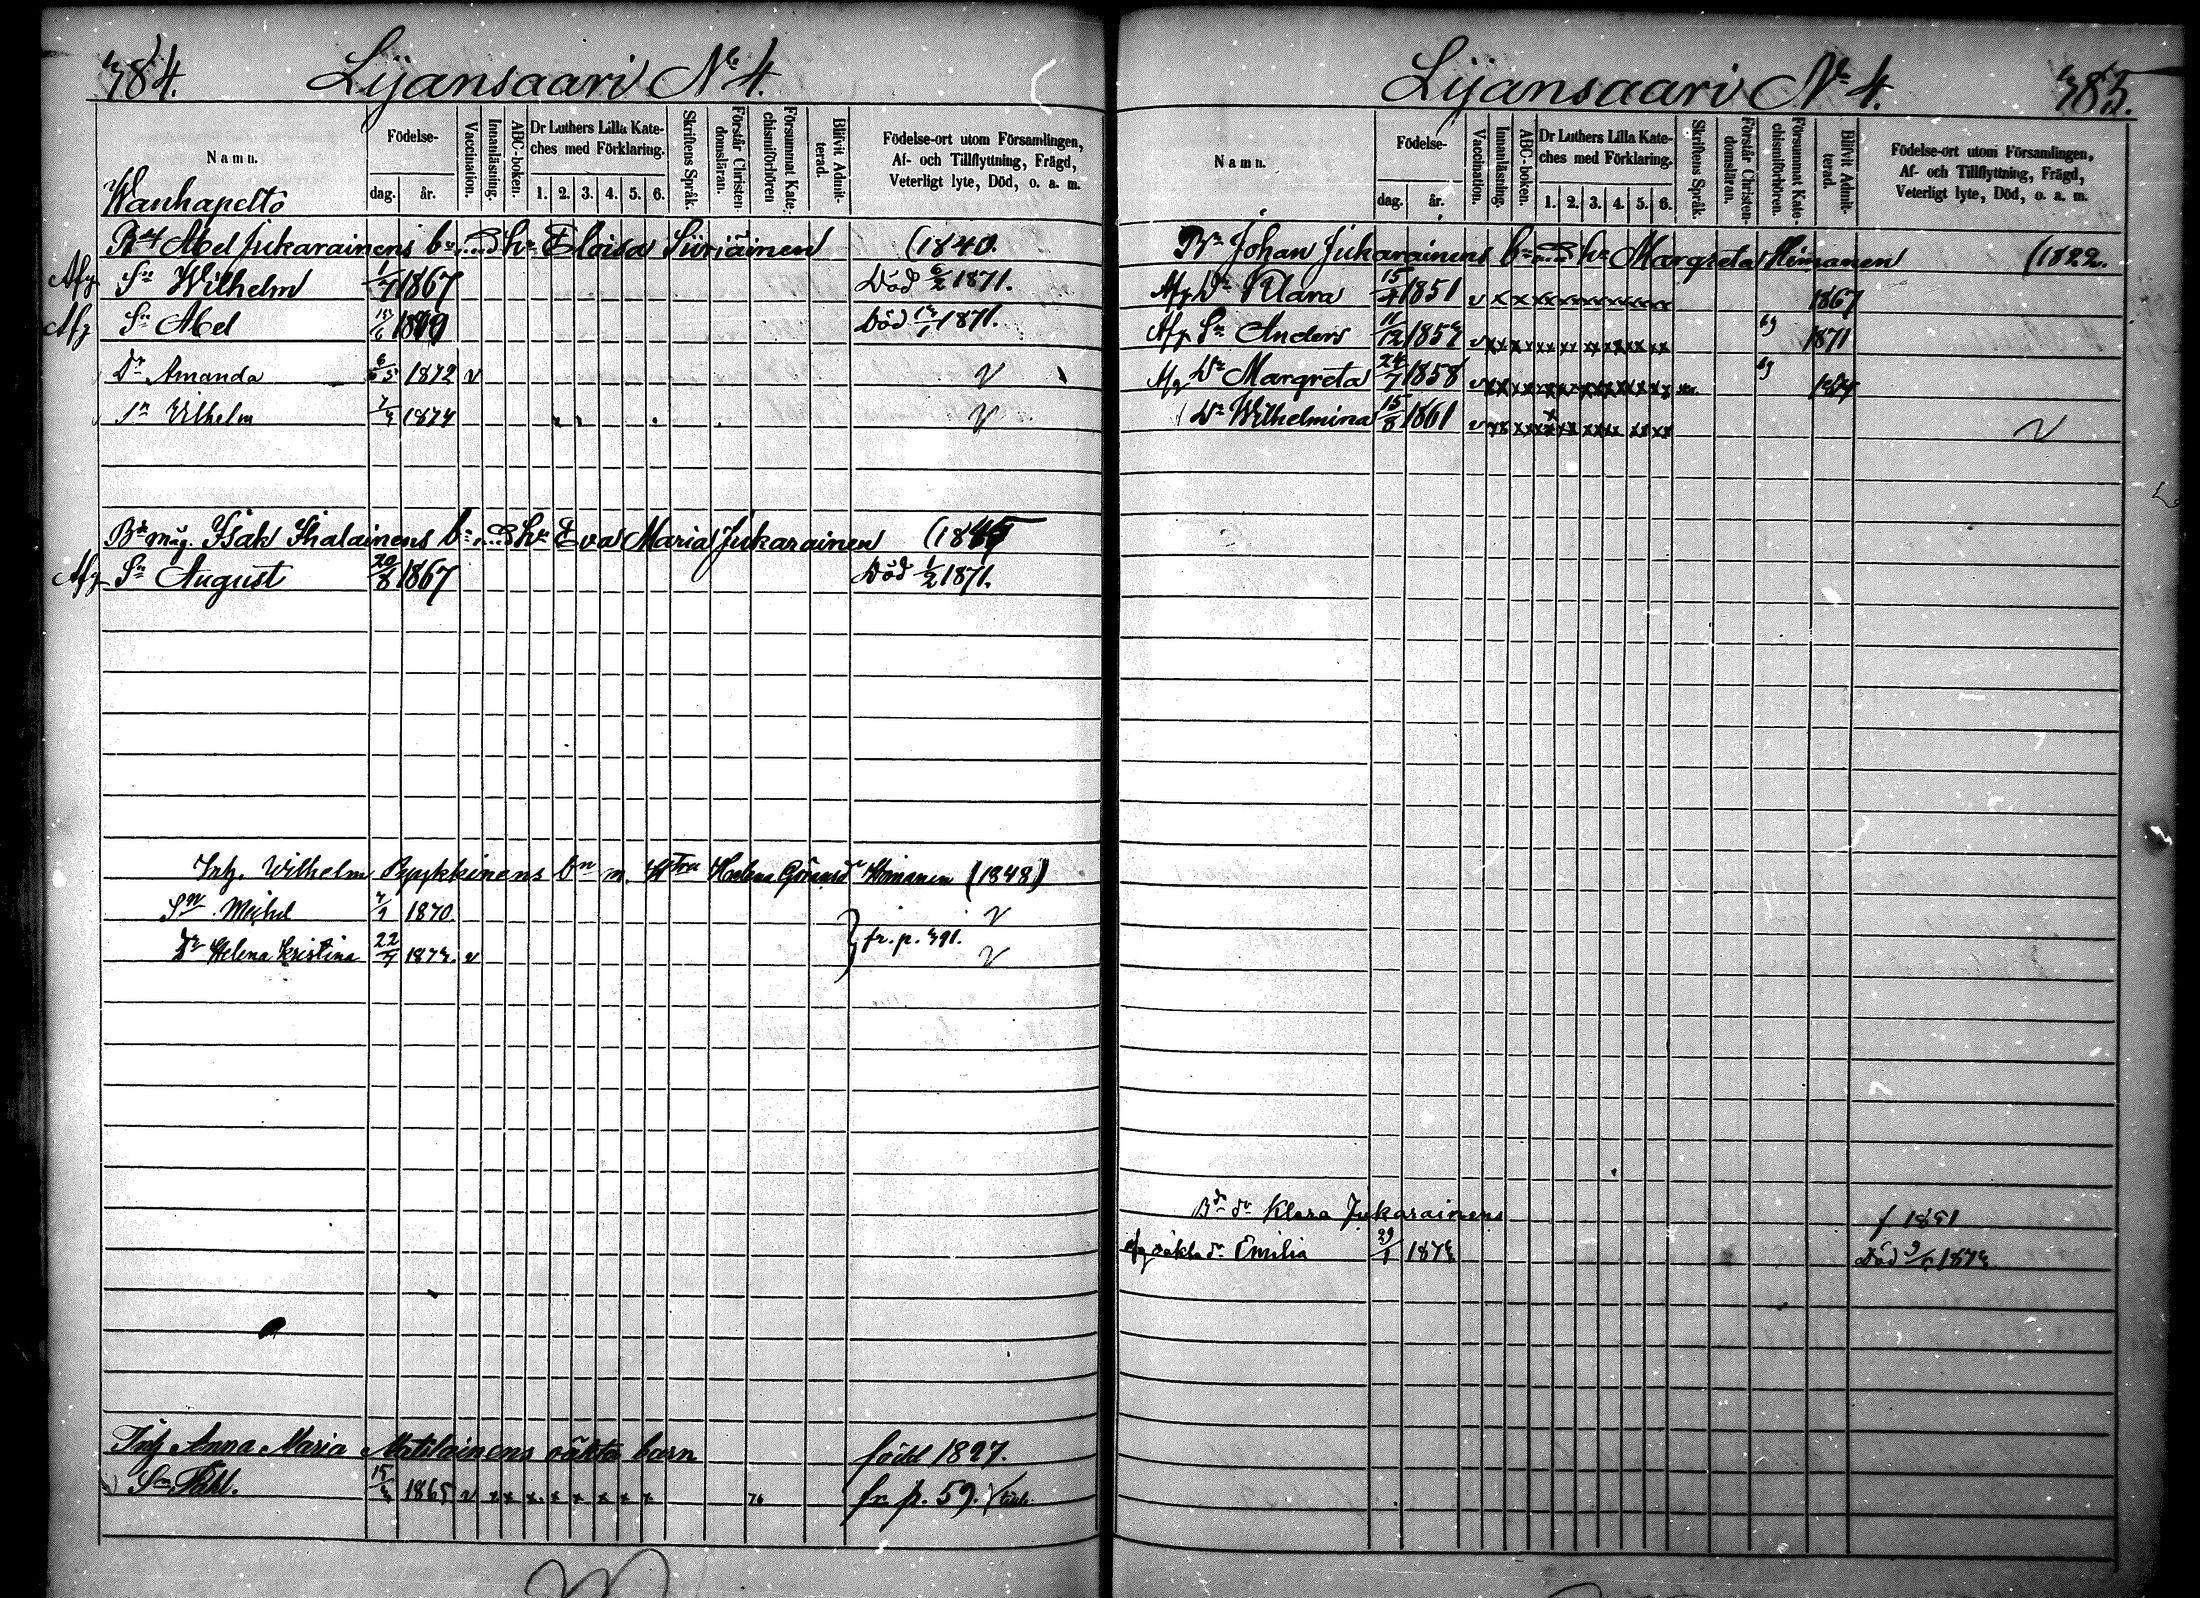 384. Lijansaari No 4.
Namn.
Födelse-
dag. år.
Vaccination.
Innanläsning.
ABC-boken.
Dr Luthers Lilla Kate-
ches med Förklaring.
1. 2. 3. 4. 5. 6.
Skriftens Språk.
Förstår Christen-
domsläran.
Försummat Kate-
chismiförhören
Blifvit Admit-
terad.
Födelse-ort utom Församlingen,
Af- och Tillflyttning, Frägd,
Veterligt lyte, Död, o. a. m.
Wanhapelto
Abel Jukarainens bn m. hu Eloisa Siiriäinen (1840.
Afg Sn Wilhelm 1/7 1867 Död 6/2 1871.
Afg Sn Abel Död 1871.
Dr Amanda 1872 v v
Sn Vilhelm 1874 v
Bd måg. Isak Ihalainens bn m. hu Eva Maria Jukarainen
Afg Sn August 20/8 1867 Död 1/2 1871.
Inh. Wilhelm Pyykkinens bn m. Hstru Helena Göransdr Himanen (1848)
Sn Michel 1870 v
Dr Helena Kristina 22/ 1873. v } fr. p. 391. v
Inh Anna Maria Matilainens oäkta barn född 1827.
Sn Påhl. 15/ 1865 v x x x x x x x x 76 fr p. 59.
Lijansaari No 4. 385.
Namn.
Födelse-
dag. år.
Vaccination.
Innanläsning.
ABC-boken.
Dr Luthers Lilla Kate-
ches med Förklaring.
1. 2. 3. 4. 5. 6.
Skriftens Språk.
Förstår Christen-
domsläran.
Försummat Kate-
chismiförhören.
Blifvit Admit-
terad.
Födelse-ort utom Församlingen,
Af- och Tillflyttning, Frägd,
Veterligt lyte, Död, o. a. m.
Bn Johan Jukarainens bn m. hu Margreta Himanen (1822.
Afg Dr Klara 15/4 1851 v x x xx xx xx xx xx xx 1867
Afg Sn Anders 11/12 1853 v xx xx xx xx xx xx xx xx 69 1871
Afg Dr Margreta 24/7 1858 v xx xx xx xx xx xx xx xx 69
Dr Wilhelmina 15/8 1861 v xx xx xx xx xx xx xx v
Bd dr Klara Jukarainens f 1851
Afg oäkta dr Emilia 29/1 1873 Död 1873.